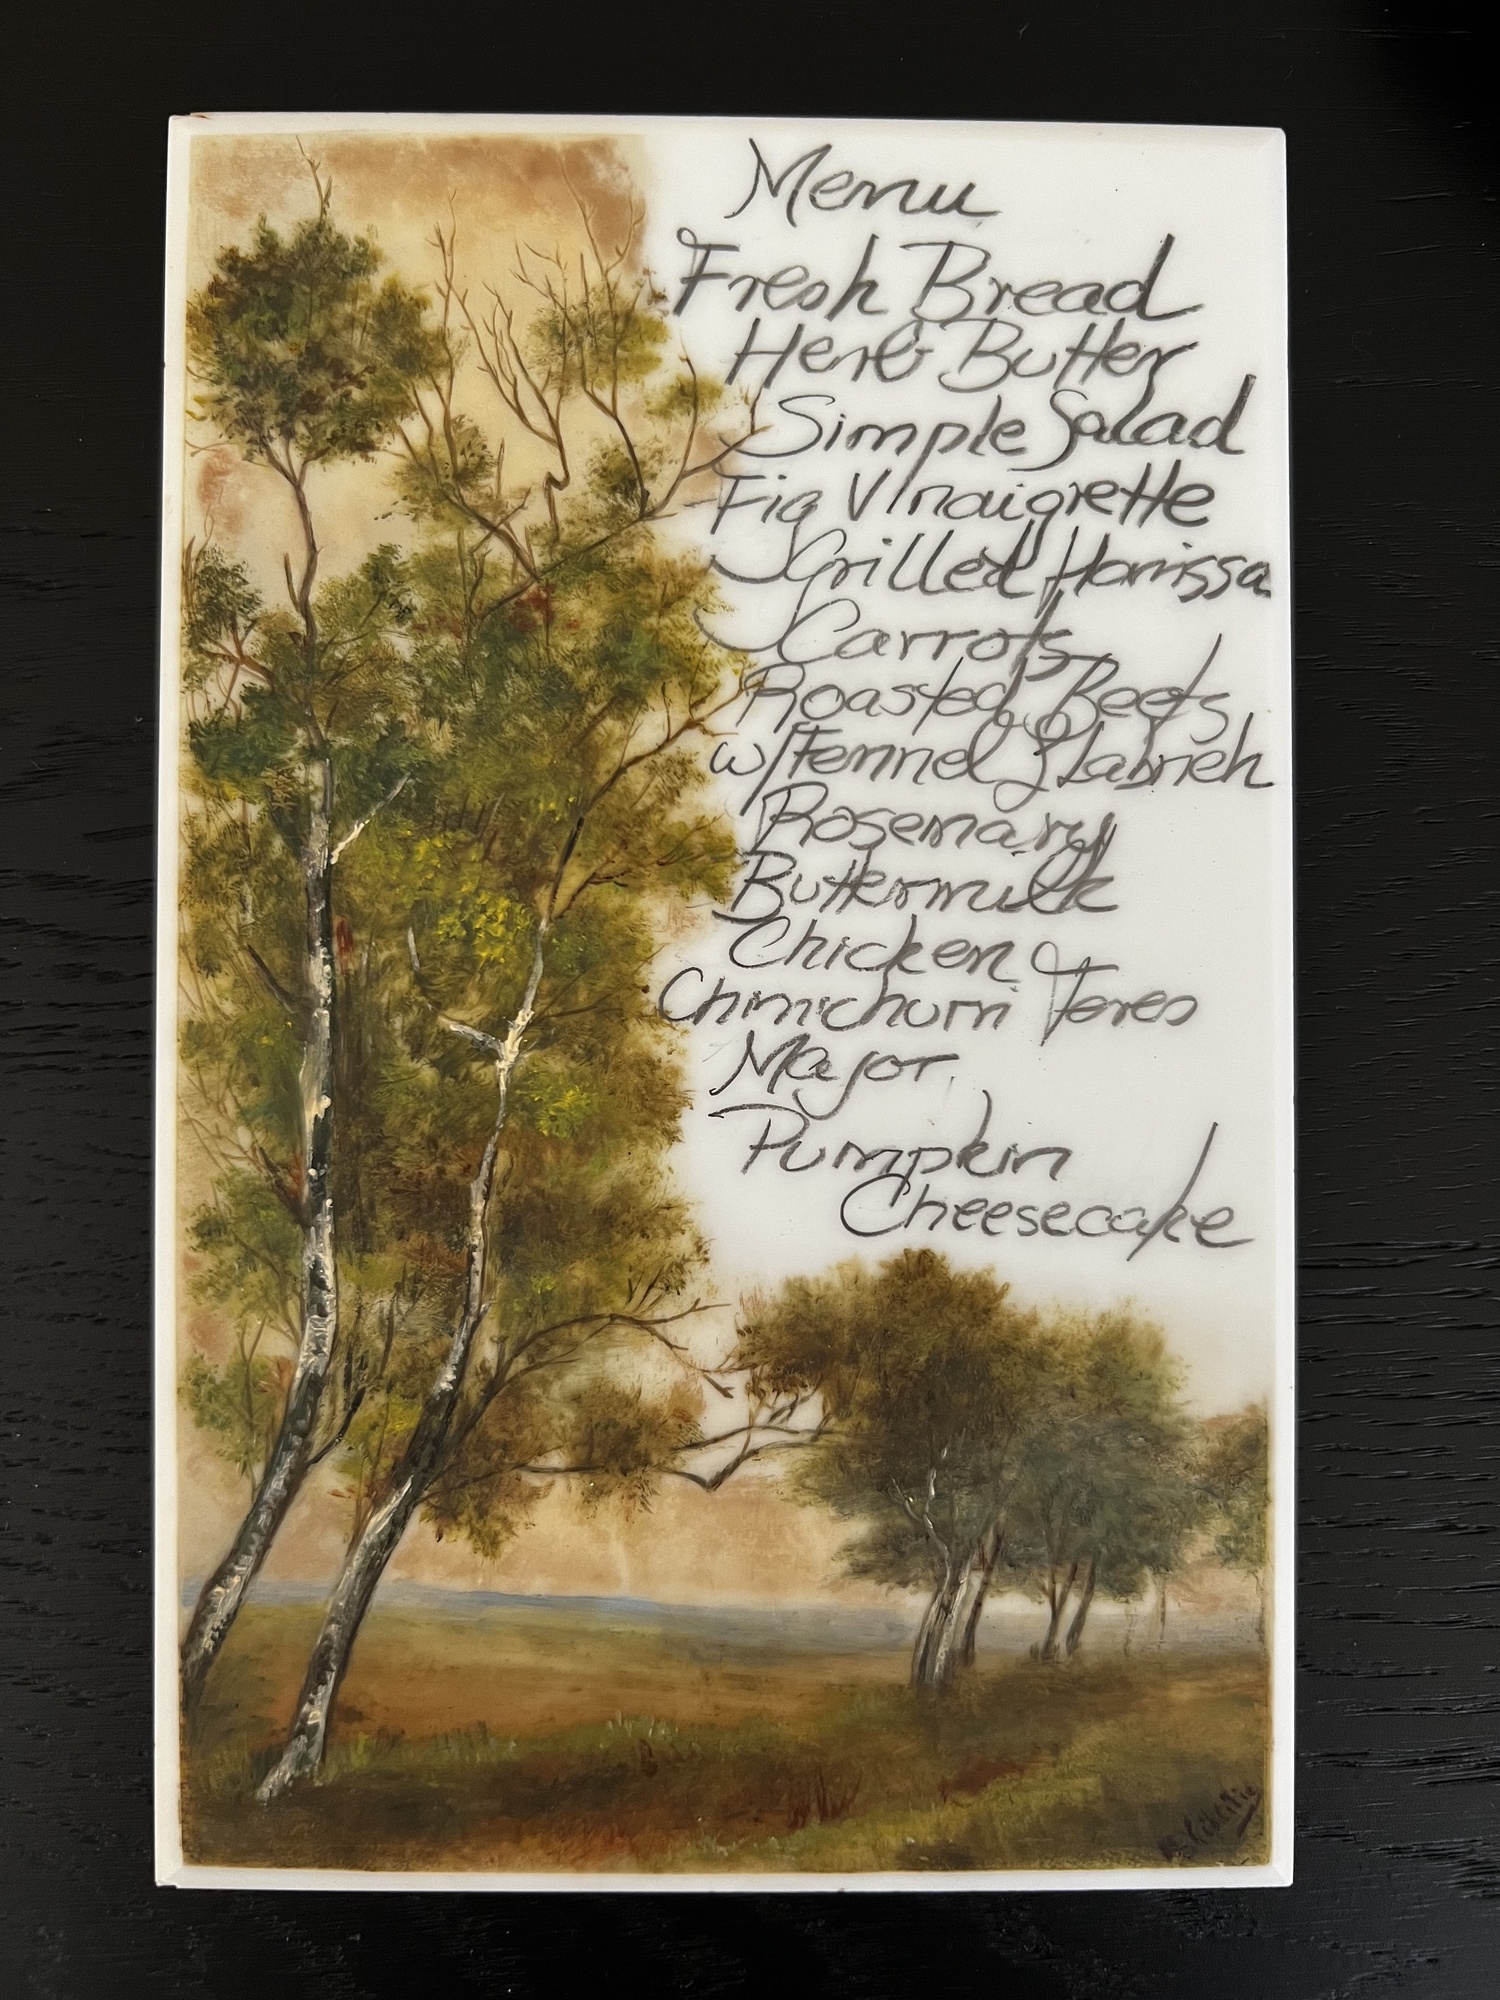 Menu
Fresh Bread
Herb Butter
Simple Salad
Fig Vinaigrette
Grilled Harissa
Carrots
Roasted Beets
w/Fennel & Labneh
Rosemary
Buttermilk
Chicken
Chimichurri Teres
Major
Pumpkin
Cheesecake